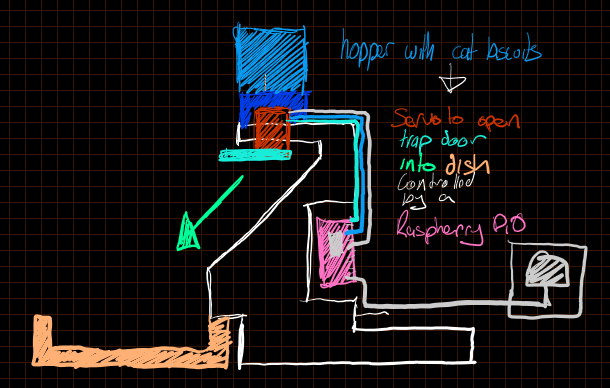 hopper with cat biscuits
Servo to open
trap door
into dish
Controlled
by a
Raspberry Pi 0